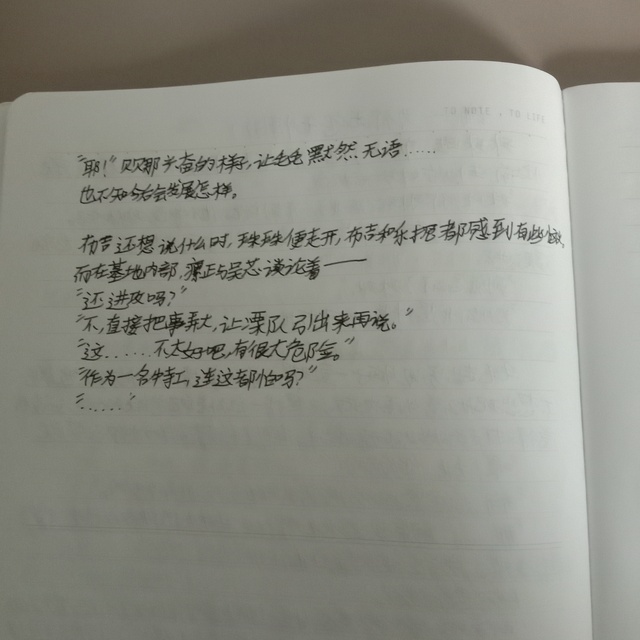 "耶!"贝贝那兴奋的样子,让毛毛默然无语……
也不知今后会发展怎样。
布吉还想说什么时,珠珠便走开,布吉和乐捉都感到有些
而在基地内部,粟正与吴芯谈论着——
"还进攻吗?"
"不,直接把事弄大,让溧队引出来再说。"
"这……不太好吧,有很大危险。"
"作为一名特工,连这都怕吗?"
"……"